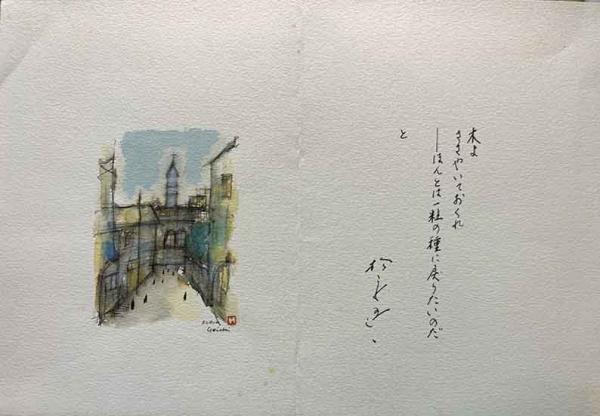 木よ
ささやいておくれ
―ほんとは一粒の種に戻りたいのだ
と